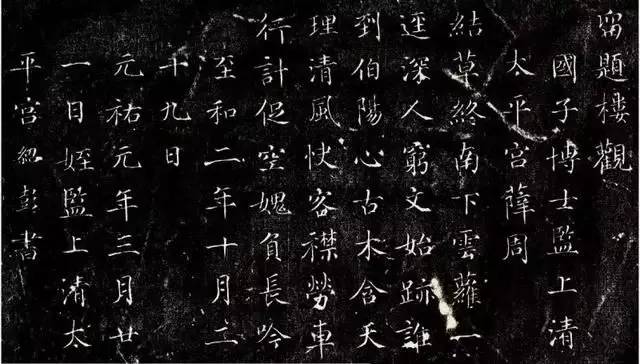 留題樓觀
國子博士監上清
太平宮薛周
結草終南下雲蘿一
逕深人窮文始跡誰
到伯陽心古木含天
理清風快客襟勞車
行計促空媿負長吟
至和二年十月三
十九日
元祐元年三月廿
一日姪監上清太
平宮紹彭書